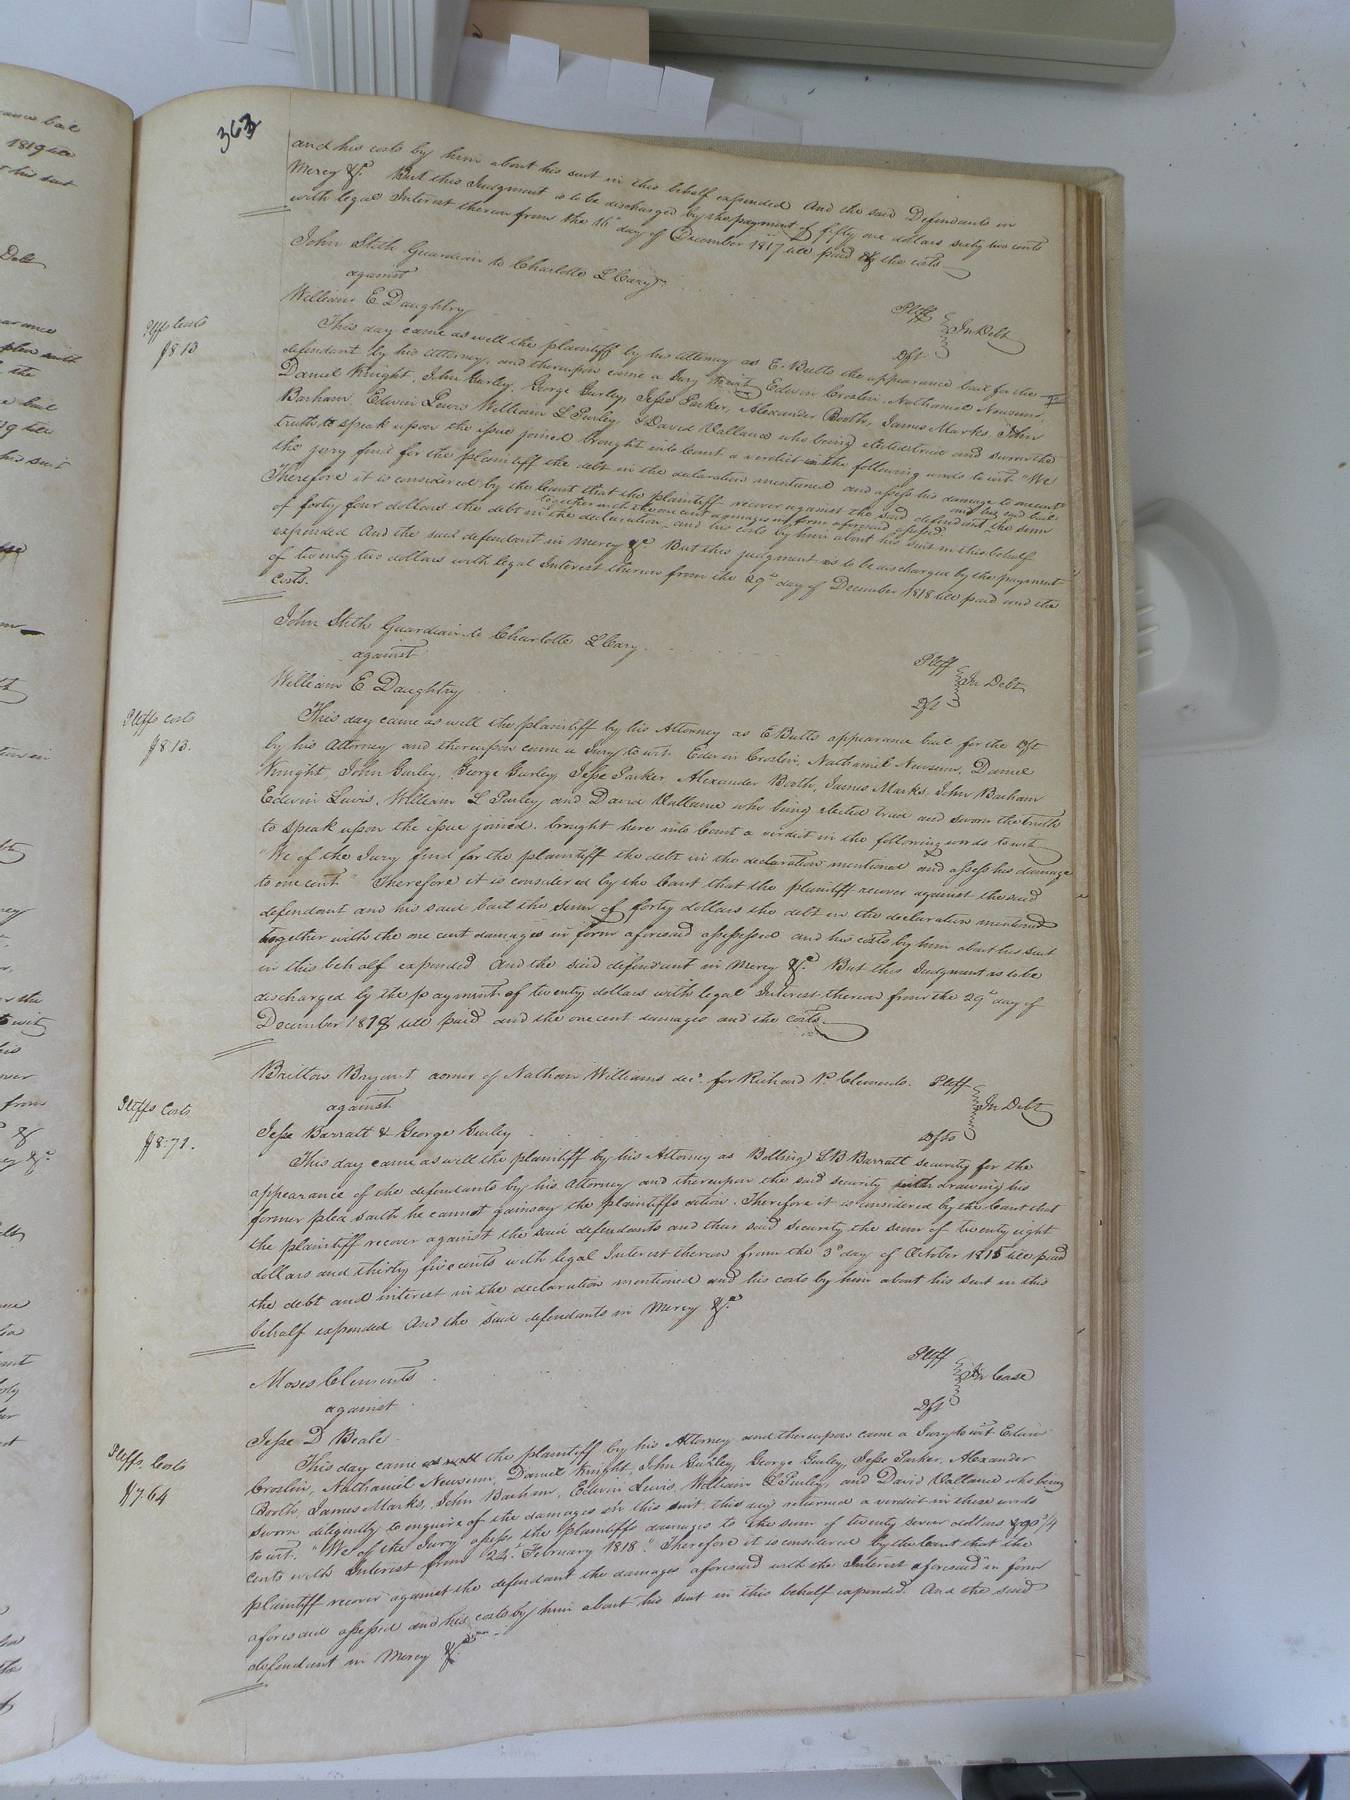 363
and his costs by him about his suit in this behalf expended And the said Defendants in
Mercy &c. But this Judgment is to be discharged by the payment of fifty one dollars sixty two cents
with legal Interest thereon from the 16th day of December 1817 till paid & the costs
John Stith Guardian to Charlotte L Cary
Pltff
against
In Debt
William E Daughtry
Dft
Plffs Costs
$8 13
This day came as well the plaintiff by his Attorney as E. Butts the appearance bail for the
defendant by his Attorney, and thereupon came a Jury to wit, Edwin Croslin, Nathaniel Newsum,
Daniel Knight, John Gurley, George Gurley, Jesse Parker, Alexander Booth, James Marks, John
Barham, Edwin Lewis William L Purley, & David Vallance who being elected tried and sworn the
truth to speak upon the issue joined brought into Court a verdict in the following words to wit. "We
the jury find for the plaintiff the debt in the declaration mentioned and assess his damage to one cent"
Therefore it is considered by the Court that the plaintiff recover against the said defendant and his said bail the sum
of forty four dollars the debt in the declaration together with the one cent damages in form aforesaid assessed and his costs by him about his suit in this behalf
expended And the said defendant in mercy &c. But this judgment is to be discharged by the payment
of twenty two dollars with legal Interest thereon from the 29th day of December 1818 till paid and the
costs.
John Stith Guardian to Charlotte L Cary
Pltff
against
In Debt
William E Daughtry
Dft
Pltffs costs
$8 13.
This day came as well the plaintiff by his Attorney as E Butts appearance bail for the Dft
by his Attorney and thereupon came a Jury to wit. Edwin Croslin, Nathaniel Newsum, Daniel
Knight, John Gurley, George Gurley, Jesse Parker, Alexander Booth, James Marks, John Barham
Edwin Lewis, William L Purley and David Vallance who being elected tried and sworn the truth
to speak upon the issue joined. brought here into Court a verdict in the following words to wit
"We of the Jury find for the plaintiff the debt in the declaration mentioned and assess his damage
to one cent" Therefore it is considered by the Court that the plaintiff recover against the said
defendant and his said bail the sum of forty dollars the debt in the declaration mentioned
together with the one cent damages in form aforesaid assessed and his costs by him about his suit
in this behalf expended And the said defendant in Mercy &c. But this Judgment is to be
discharged by the payment of twenty dollars with legal Interest thereon from the 29th day of
December 1818 till paid and the one cent damages and the costs
Britton Bryant admr of Nathan Williams decd. for Richard P. Clements. Pltff
against
In Debt
Jesse Barratt & George Gurley
Dfts
Pltffs Costs
$8.71.
This day came as well the plaintiff by his Attorney as Bolling L B Barratt security for the
appearance of the defendants by his Attorney and thereupon the said security withdrawing his
former plea saith he cannot gainsay the plaintiffs action. Therefore it is considered by the Court that
the plaintiff recover against the said defendants and their said security the sum of twenty eight
dollars and thirty five cents with legal Interest thereon from the 3d day of October 1815 till paid
the debt and interest in the declaration mentioned and his costs by him about his suit in this
behalf expended And the said defendants in Mercy &c.
Moses Clements
Pltff
against
In Case
Jesse D Beale
Dft
Pltffs Costs
$7.64
This day came as well the plaintiff by his Attorney and thereupon came a Jury to wit Edwin
Croslin, Nathaniel Newsum, Daniel Knight, John Gurley, George Gurley, Jesse Parker, Alexander
Booth, James Marks, John Barham, Edwin Lewis, William L Purley, and David Vallance who being
sworn diligently to enquire of the damages in this suit this day returned a verdict in these words
to wit. "We of the Jury assess the plaintiffs damages to the sum of twenty seven dollars
cents with Interest from 24th February 1818". Therefore it is considered by the Court that the
plaintiff recover against the defendant the damages aforesaid with the Interest aforesaid in form
aforesaid assessed and his costs by him about his suit in this behalf expended. And the said
defendant in Mercy &c.